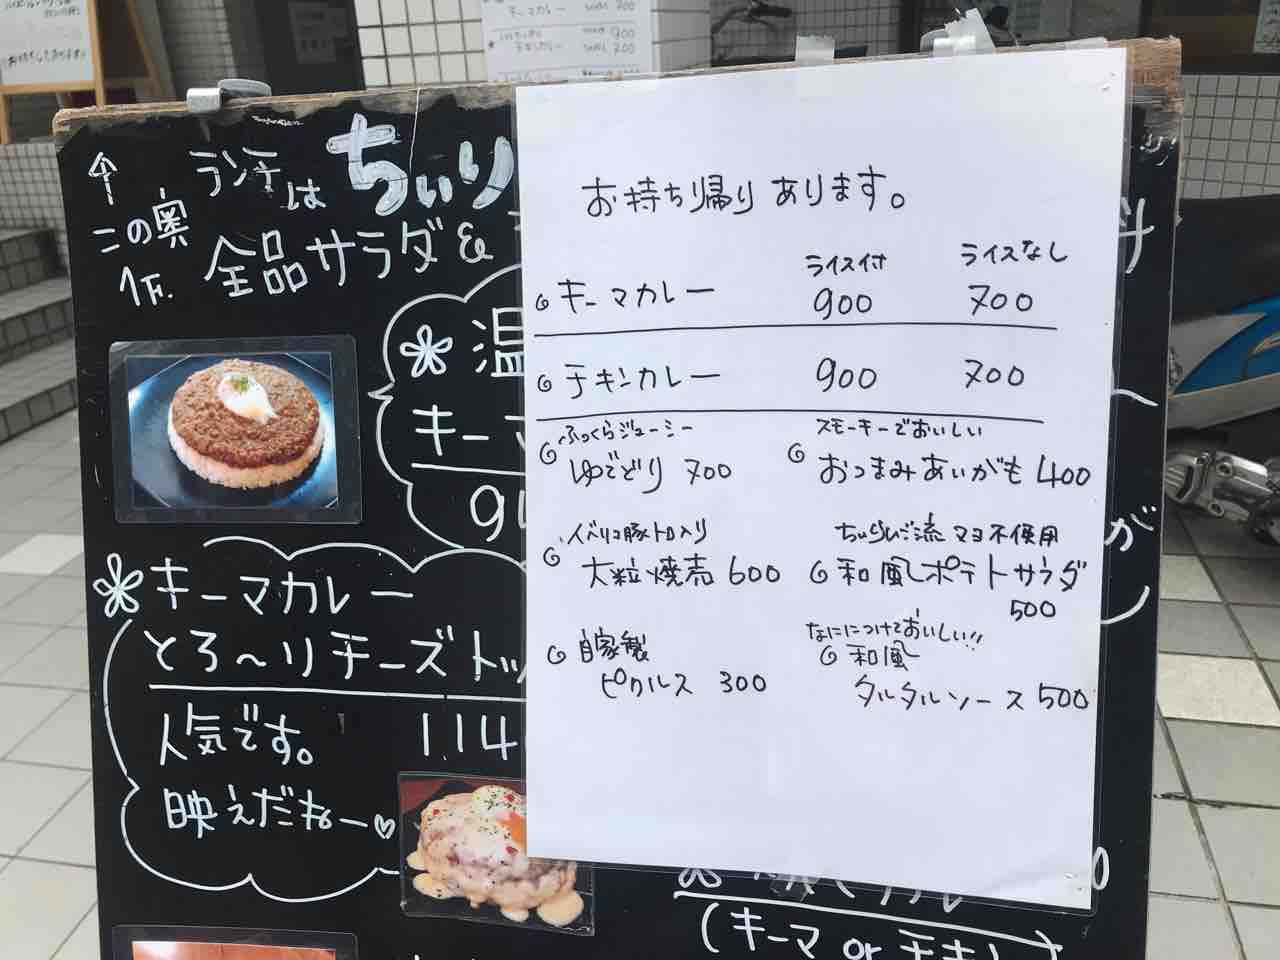 ↑
この奥
1F.
ランチは ちぃり
全品サラダ&
❊ 温
キーマ
❊ キーマカレー
とろ〜りチーズトッ
人気です。 114
映えだねー♡
お持ち帰りあります。
ライス付 ライスなし
キーマカレー 900 700
チキンカレー 900 700
ふっくらジューシー
ゆでどり 700
スモーキーでおいしい
おつまみあいがも 400
イベリコ豚トロ入り
大粒焼売 600
ちぃりぃご流 マヨ不使用
和風ポテトサラダ
500
自家製
ピクルス 300
なににつけてもおいしい!!
和風
タルタルソース 500
(キーマ or チキ
チキンカレー
700
900